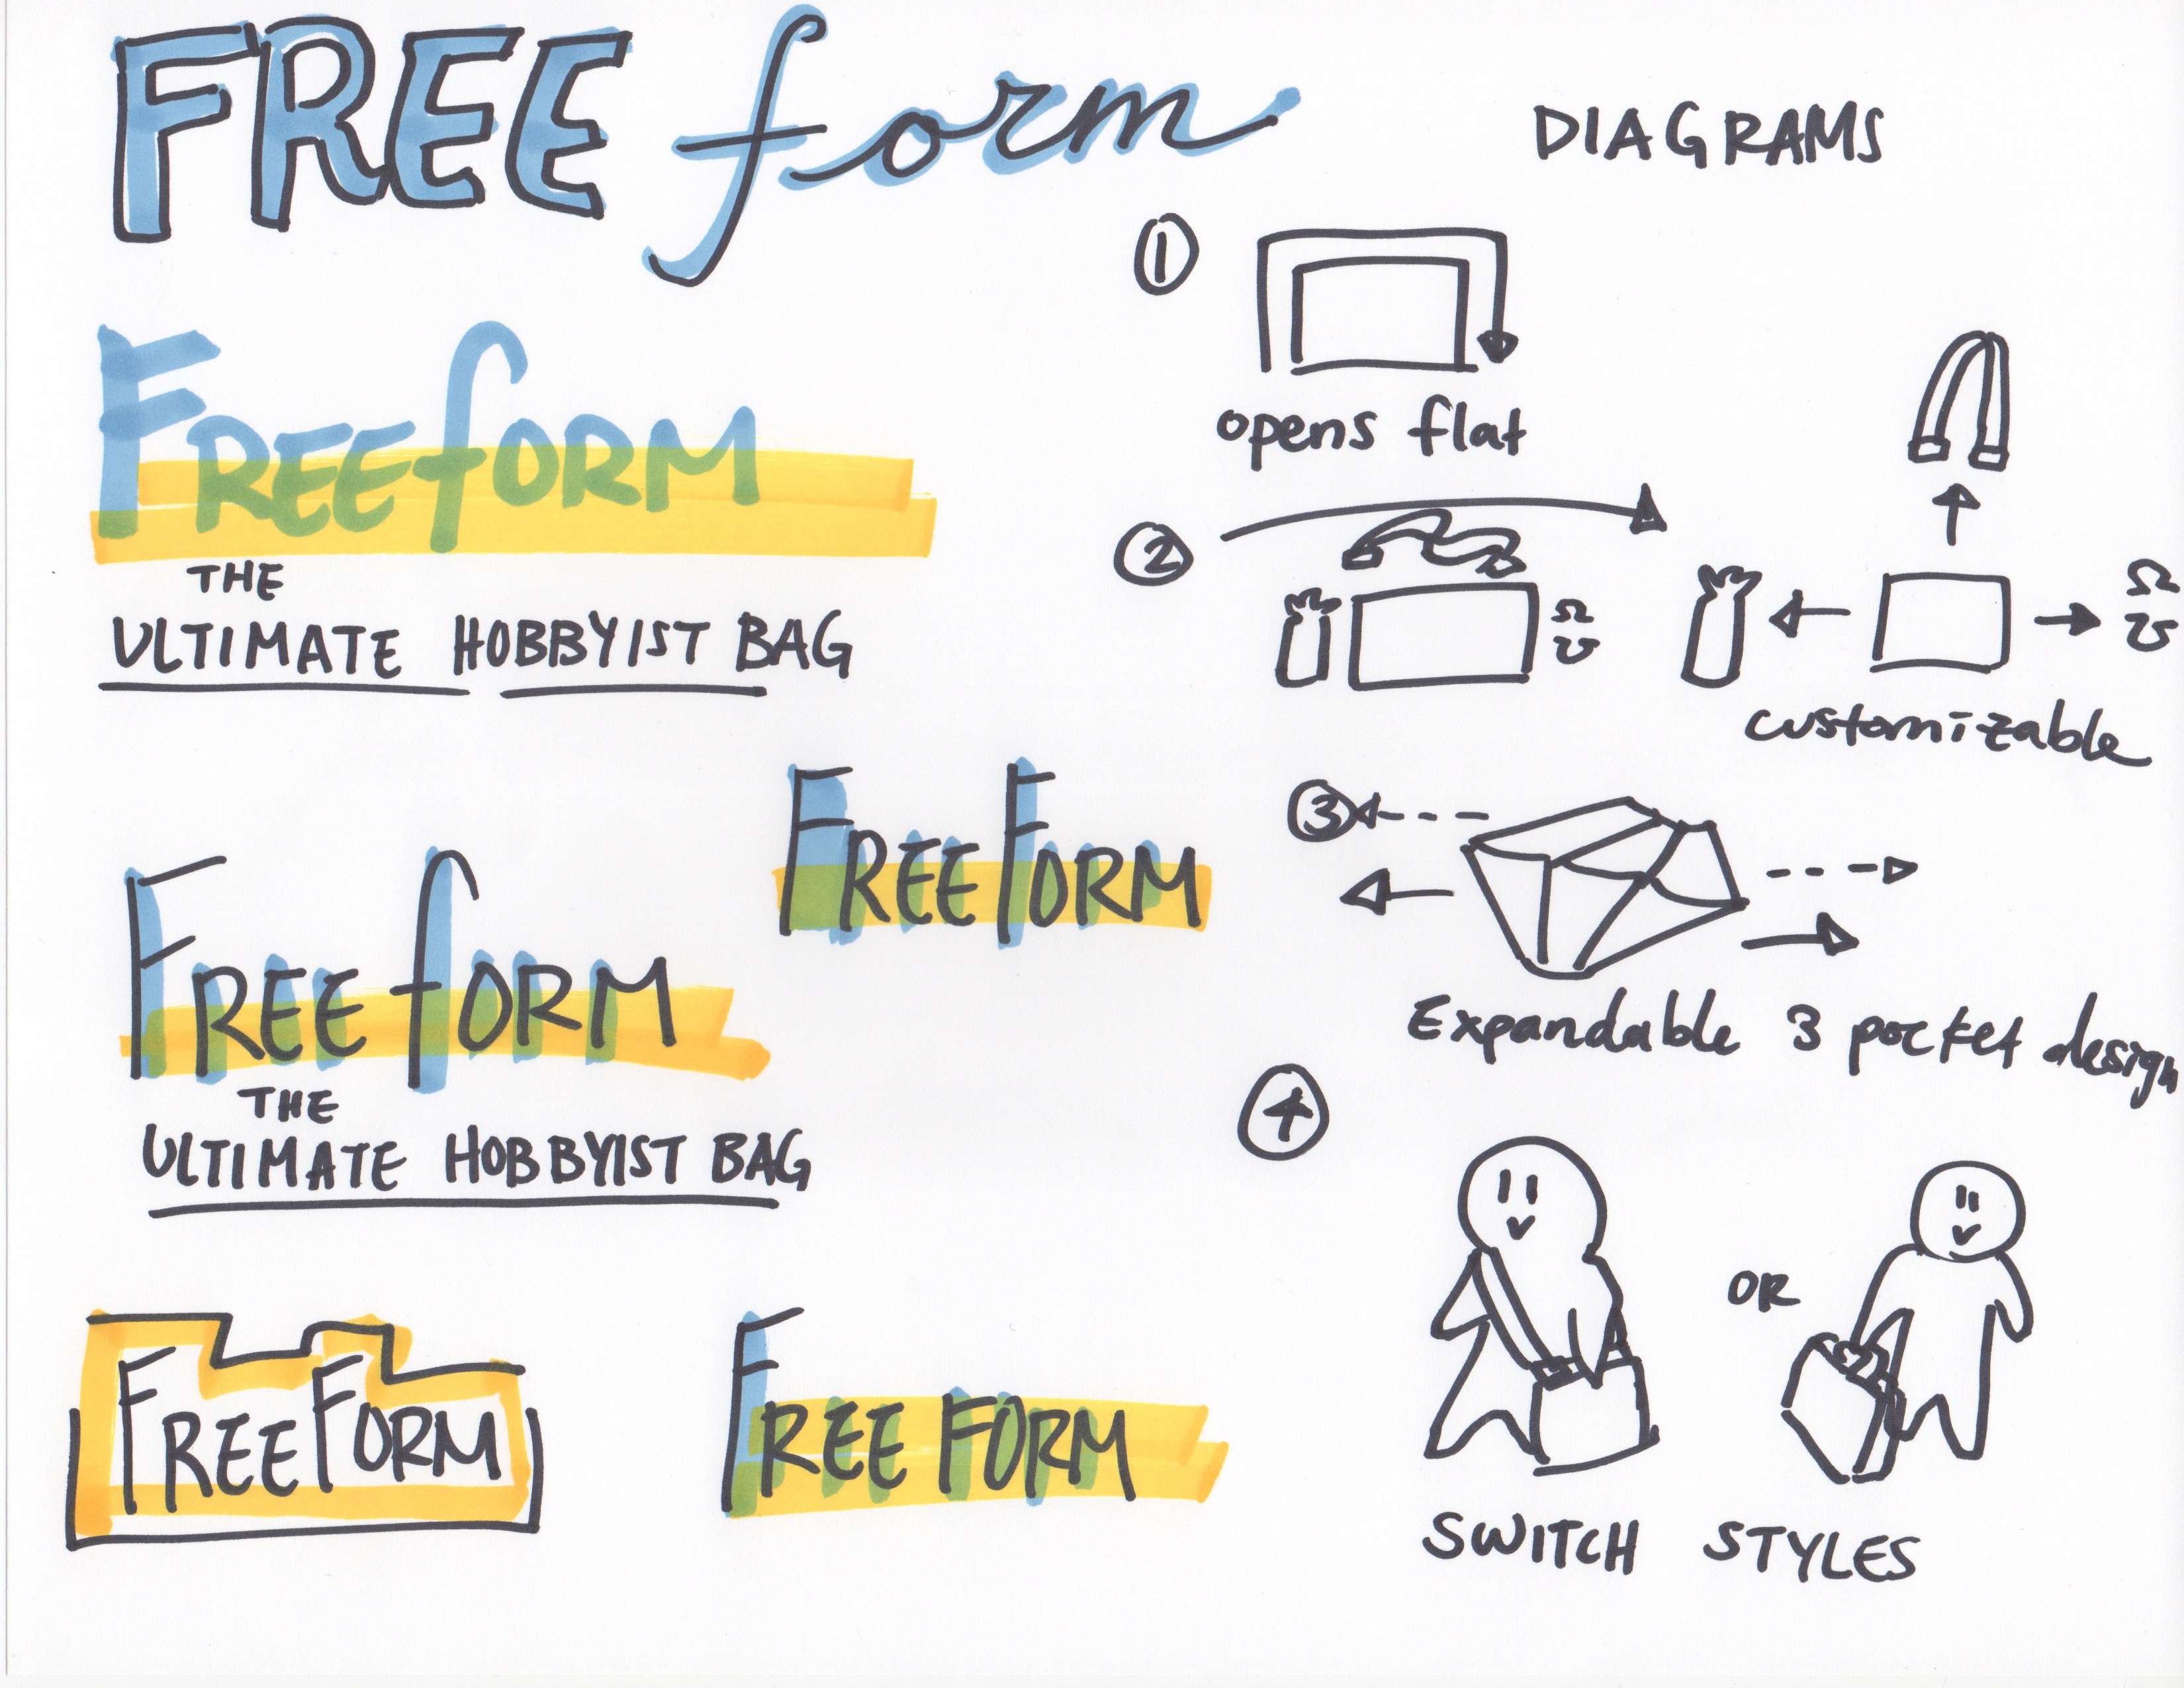 FREE form
FREEfORM
THE
ULTIMATE HOBBYIST BAG
FREEFORM
FREE fORM
THE
ULTIMATE HOBBYIST BAG
FREEFORM
FREE FORM
DIAGRAMS
1
opens flat
2
customizable
3
Expandable 3 pocket design
4
OR
SWITCH STYLES